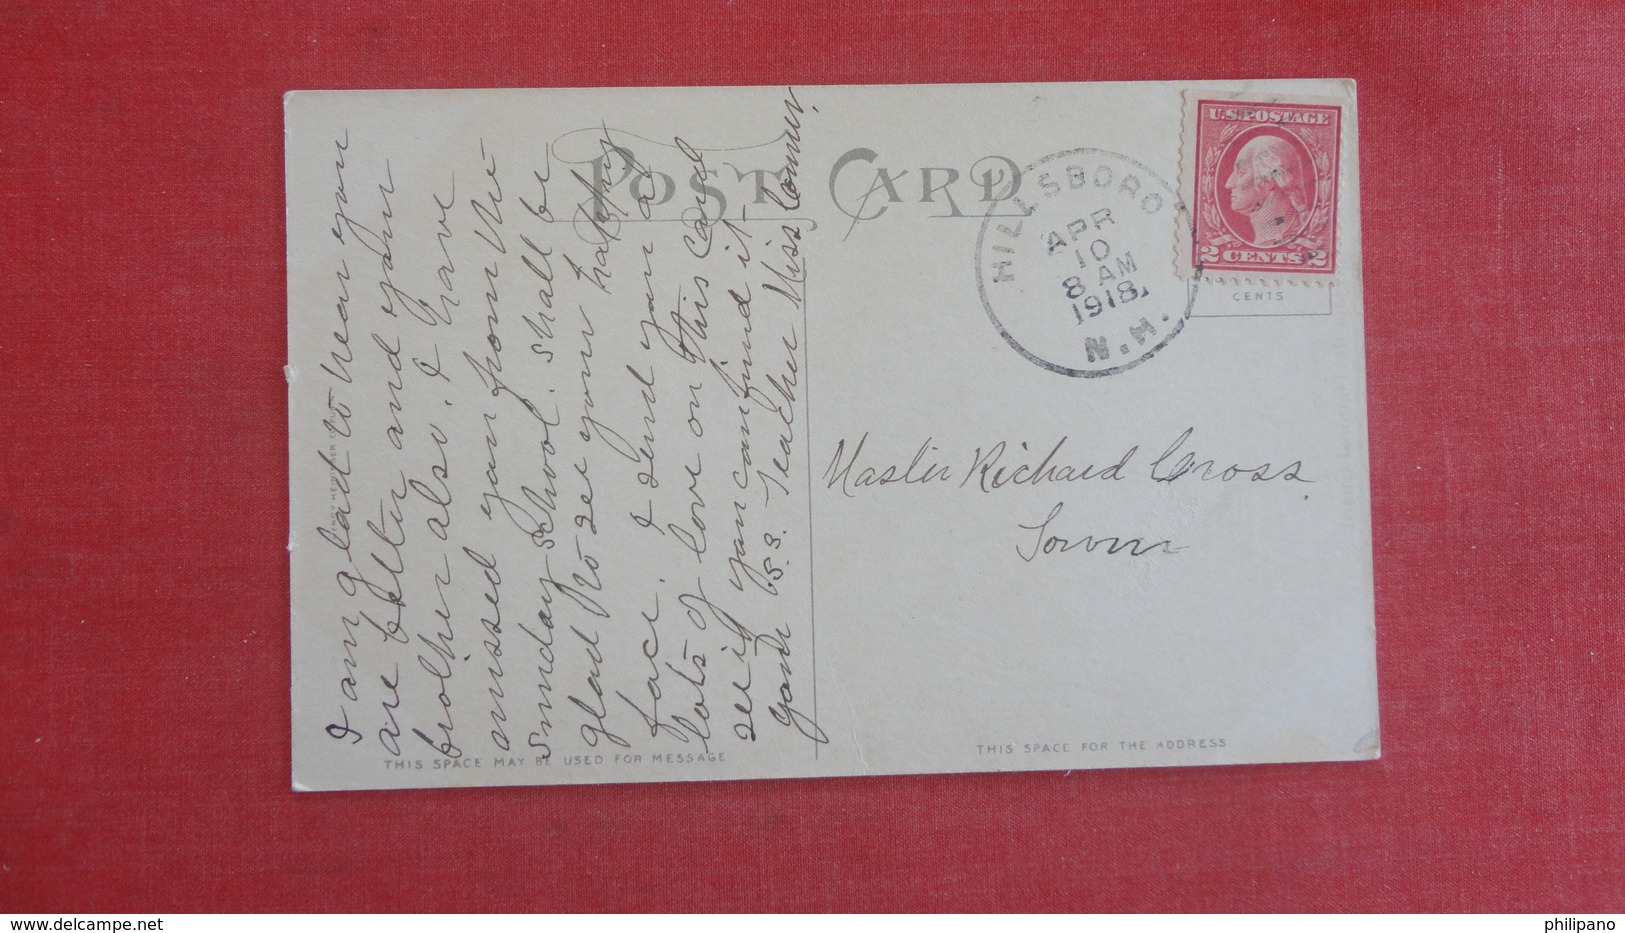 POST CARD
HILLSBORO
APR
10
8 AM
1918
N.H.
U.S. POSTAGE
2 CENTS 2
CENTS
I am glad to hear you
are better and your
brother also. I have
missed you from the
Sunday School. Shall be
glad to see your happy
face. I send you a
lots of love on this card
see if you can find it
your S.S. Teacher Miss
Master Richard Cross
Town
THIS SPACE MAY BE USED FOR MESSAGE
THIS SPACE FOR THE ADDRESS
delcampe.net
philipano